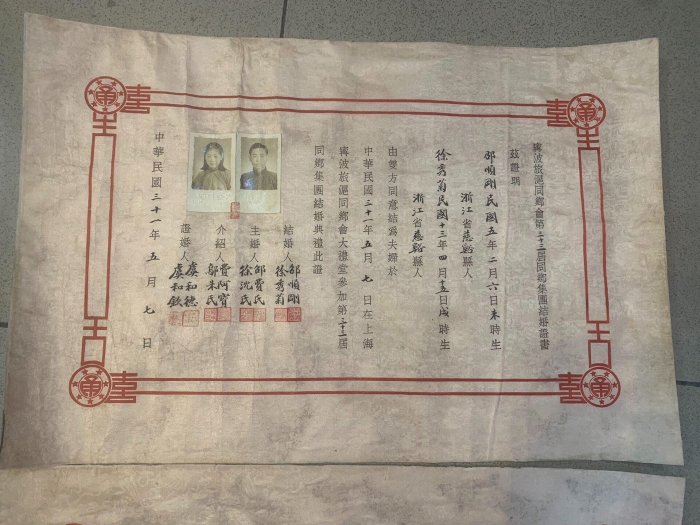 寗波旅滬同鄉會第二十三屆同鄉集團結婚證書
茲證明
邵順剛民國五年二月六日未時生
浙江省慈谿縣人
徐秀菊民國十三年四月十五日戌時生
浙江省慈谿縣人
由雙方同意結爲夫婦於
中華民國三十一年五月七日在上海
寗波旅滬同鄉會大禮堂參加第二十三屆
同鄉集團結婚典禮此證
結婚人 邵順剛
徐秀菊
主婚人 邵費氏
徐沈氏
介紹人 費阿寶
鄔朱氏
證婚人 虞和德
虞和欽
中華民國三十一年五月七日